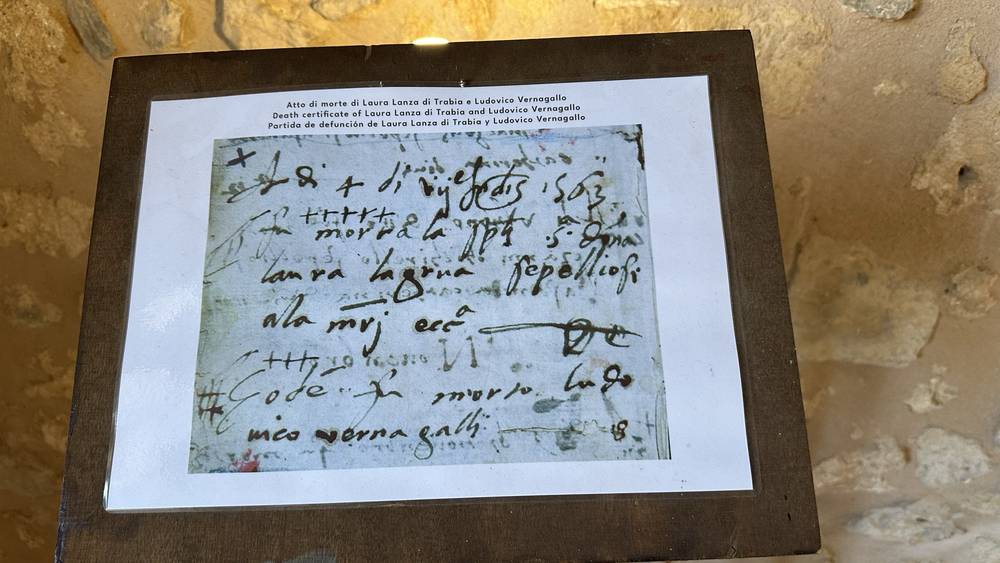 Atto di morte di Laura Lanza di Trabia e Ludovico Vernagallo
Death certificate of Laura Lanza di Trabia and Ludovico Vernagallo
Partida de defunción de Laura Lanza di Trabia y Ludovico Vernagallo
Adi 4 di 1563
fu morta la spt s. dona
laura lagrua sepelliosi
ala mrj ecca
fu morto ludo
vico verna galli